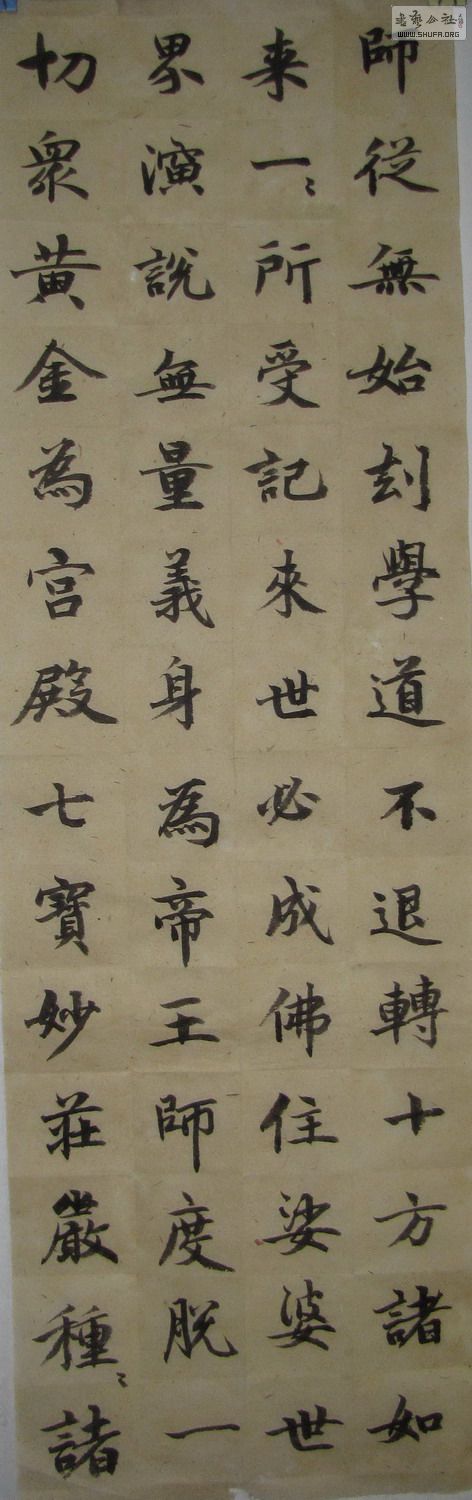 師從無始刦學道不退轉十方諸如
来一〻所受記來世必成佛住娑婆世
界演說無量義身為帝王師度脫一
切衆黃金為宮殿七寶妙莊嚴種〻諸
書藝公社
WWW.SHUFA.ORG